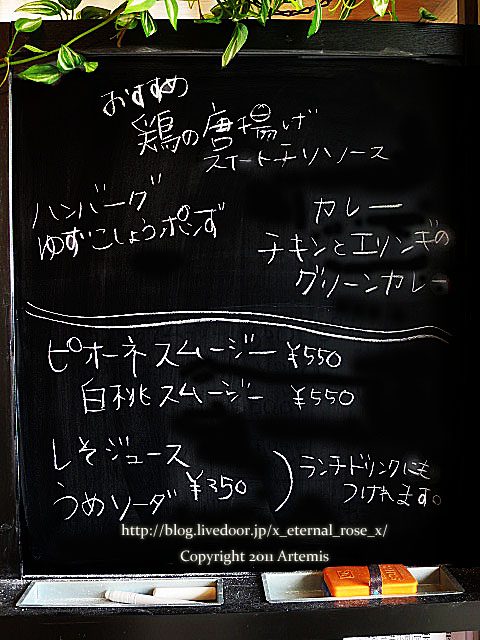 おすすめ
鶏の唐揚げ
スイートチリソース
ハンバーグ
ゆずこしょうポンず
カレー
チキンとエリンギの
グリーンカレー
ピオーネスムージー ¥550
白桃スムージー ¥550
しそジュース
うめソーダ ¥350
ランチドリンクにも
つけれます。
http://blog.livedoor.jp/x_eternal_rose_x/
Copyright 2011 Artemis